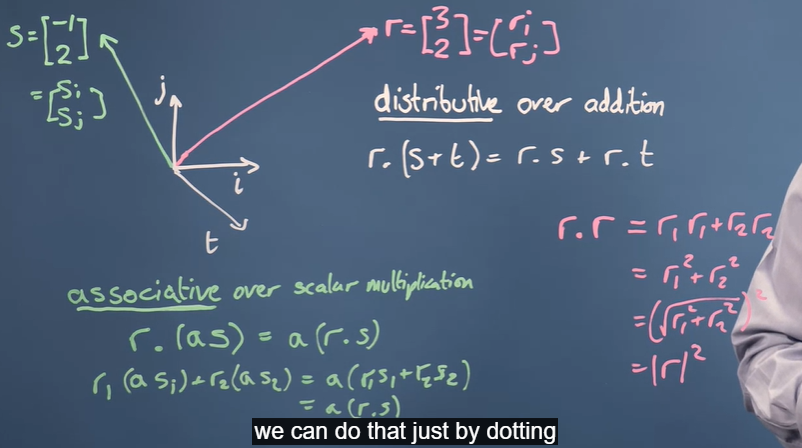 s = [-1 2] = [si sj]
r = [3 2] = [ri rj]
j
i
t
distributive over addition
r.(s+t) = r.s + r.t
r.r = r1 r1 + r2 r2
= r1² + r2²
= (√r1² + r2²)²
= |r|²
associative over scalar multiplication
r.(as) = a(r.s)
r1(asi) + r2(as2) = a(r1s1 + r2s2)
= a(r.s)
we can do that just by dotting